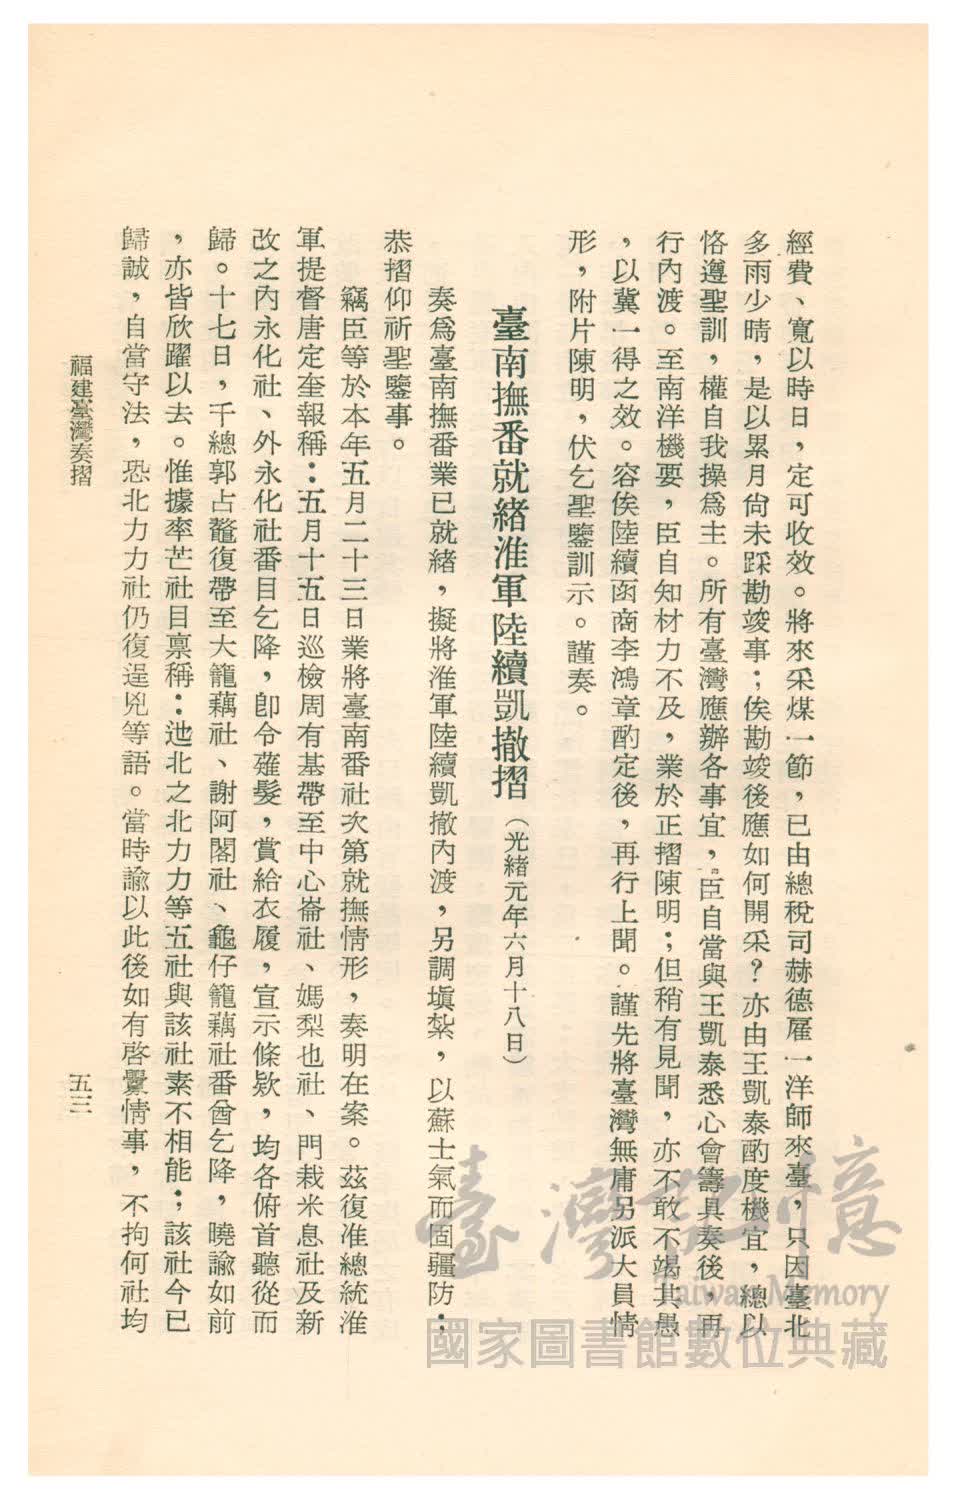 經費、寬以時日，定可收效。將來采煤一節，已由總稅司赫德雇一洋師來臺，只因臺北
多雨少晴，是以累月尚未踩勘竣事；俟勘竣後應如何開采？亦由王凱泰酌度機宜，總以
恪遵聖訓，權自我操爲主。所有臺灣應辦各事宜，臣自當與王凱泰悉心會籌具奏後，再
行內渡。至南洋機要，臣自知材力不及，業於正摺陳明；但稍有見聞，亦不敢不竭其愚
，以冀一得之效。容俟陸續函商李鴻章酌定後，再行上聞。謹先將臺灣無庸另派大員情
形，附片陳明，伏乞聖鑒訓示。謹奏。
臺南撫番就緒淮軍陸續凱撤摺（光緒元年六月十八日）
奏爲臺南撫番業已就緒，擬將淮軍陸續凱撤內渡，另調塡紮，以蘇士氣而固疆防；
恭摺仰祈聖鑒事。
竊臣等於本年五月二十三日業將臺南番社次第就撫情形，奏明在案。茲復准總統淮
軍提督唐定奎報稱：五月十五日巡檢周有基帶至中心崙社、媽梨也社、門栽米息社及新
改之內永化社、外永化社番目乞降，卽令薙髮，賞給衣履，宣示條欵，均各俯首聽從而
歸。十七日，千總郭占鼇復帶至大籠藕社、謝阿閣社、龜仔籠藕社番酋乞降，曉諭如前
，亦皆欣躍以去。惟據率芒社目禀稱：迆北之北力力等五社與該社素不相能；該社今已
歸誠，自當守法，恐北力力社仍復逞兇等語。當時諭以此後如有啓釁情事，不拘何社均
福建臺灣奏摺
五三
臺灣記憶
Taiwan Memory
國家圖書館數位典藏